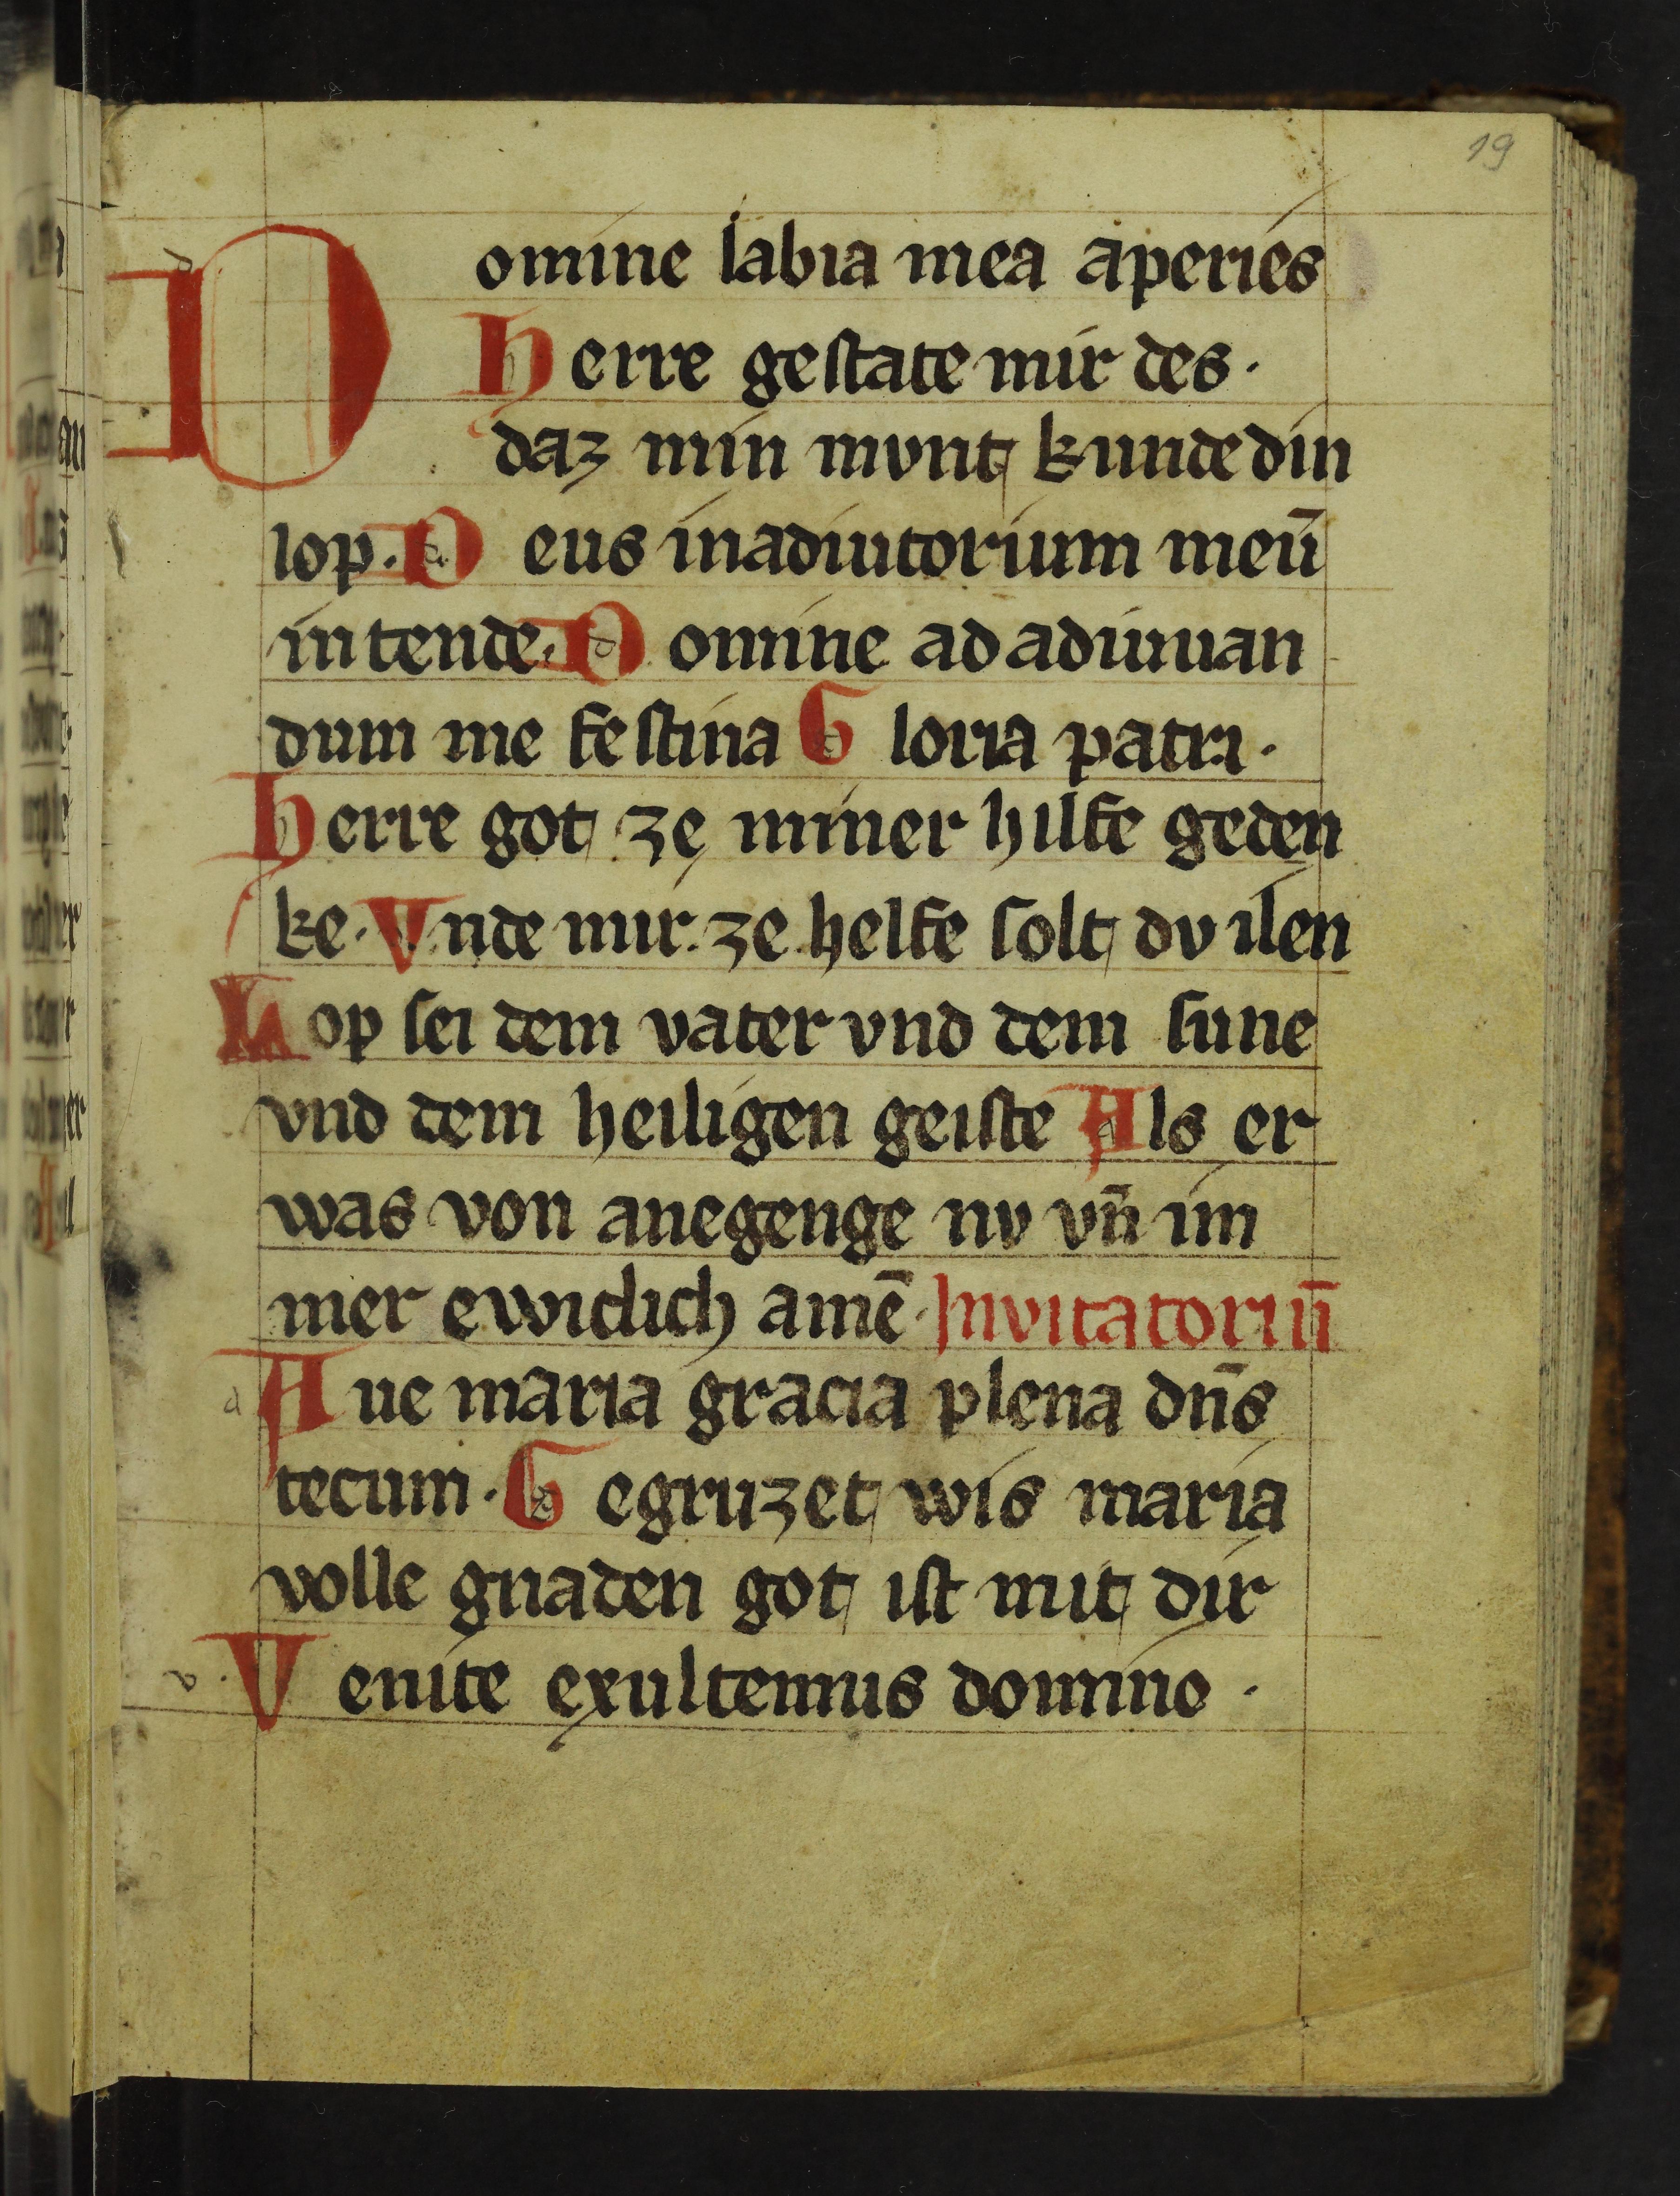 19
Domine labia mea aperies
Herre gestate mir des·
daz min mvnt kunde din
lop· Deus inadiutorium meū
intende· Domine ad adiuuan
dum me festina Gloria patri·
Herre got ze miner hilfe geden
ke· Vnde mir ze helfe solt dv ilen
Lop sei dem vater vnd dem sune
vnd dem heiligen geiste Als er
was von anegenge nv vn̄ im
mer ewiclich amē· Invitatoriū
Aue maria gracia plena dn̄s
tecum· Gegruzet wis maria
volle gnaden got ist mit dir
Venite exultemus domino·